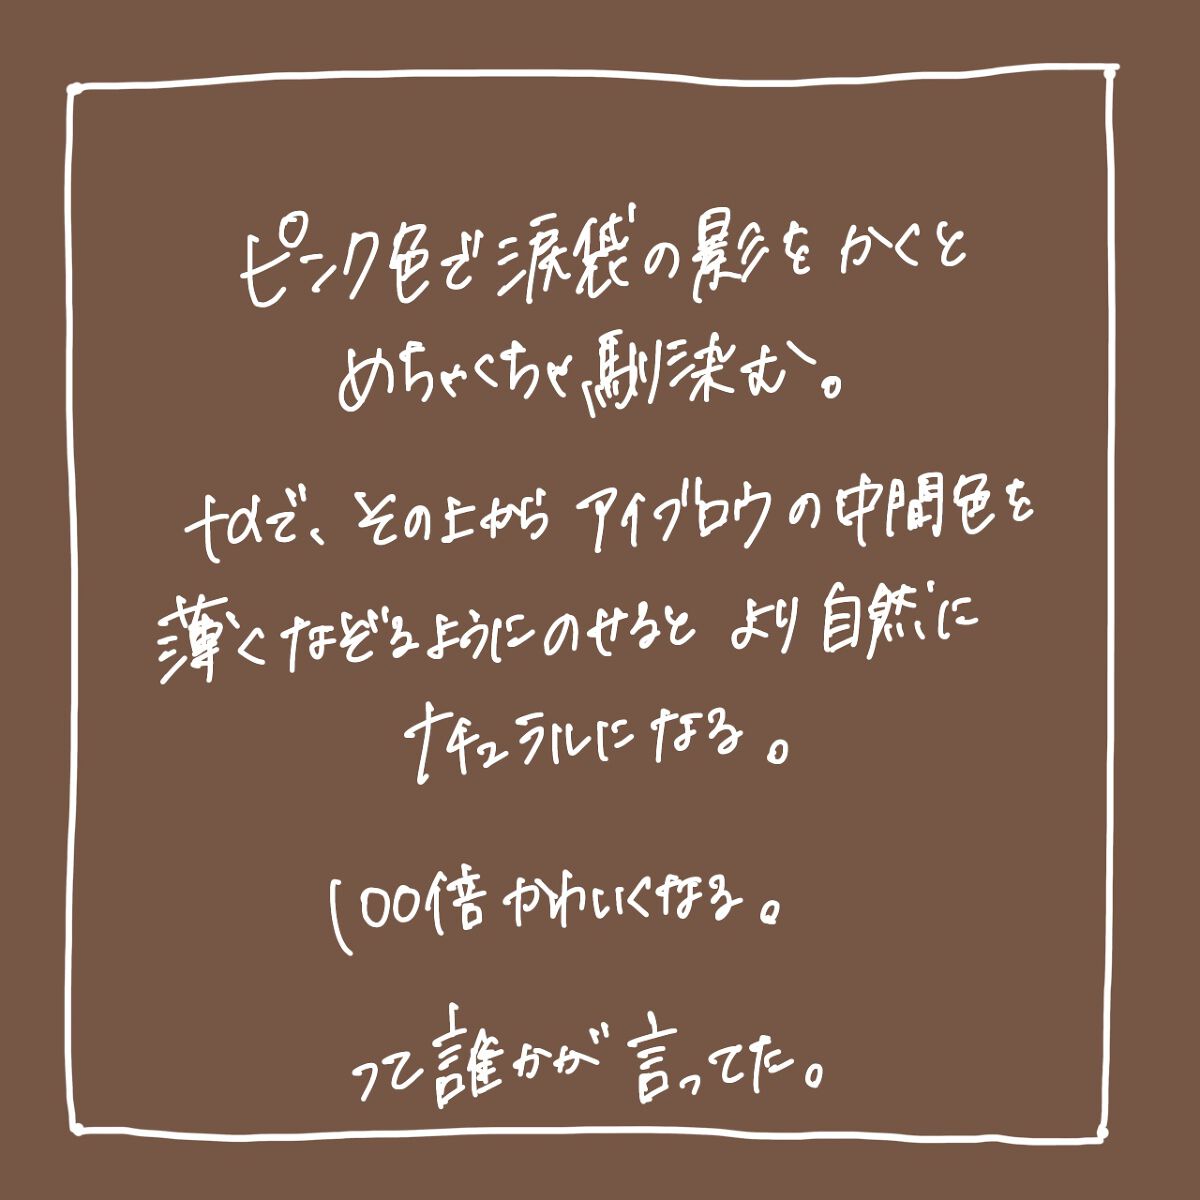 ピンク色で涙袋の影をかくと
めちゃくちゃ馴染む。
+αで、その上からアイブロウの中間色を
薄くなぞるようにのせるとより自然に
ナチュラルになる。
100倍かわいくなる。
って誰かが言ってた。